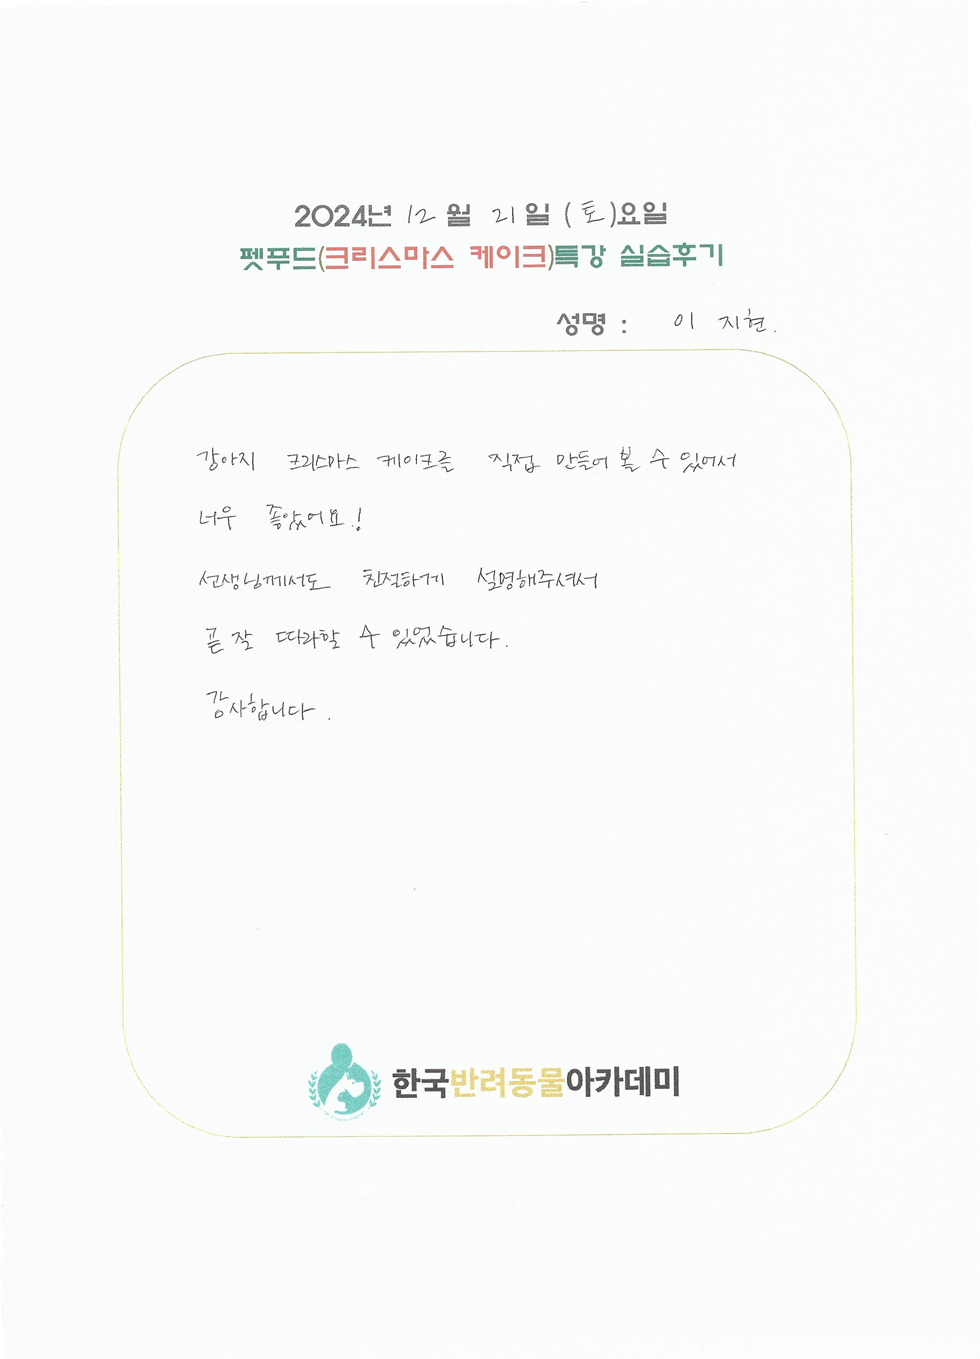 2024년 12월 21일 (토)요일
펫푸드(크리스마스 케이크)특강 실습후기
성명 : 이 지현.
강아지 크리스마스 케이크를 직접 만들어 볼 수 있어서
너무 좋았어요!
선생님께서도 친절하게 설명해주셔서
곧잘 따라할 수 있었습니다.
감사합니다.
한국반려동물아카데미